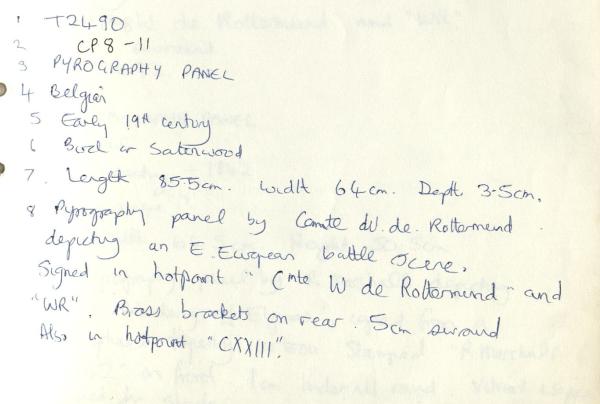 1 T2490
2 CP8-11
3 PYROGRAPHY PANEL
4 Belgian
5 Early 19th century
6 Birch or Satinwood
7. Length 85.5cm. Width 64cm. Depth 3.5cm.
8 Pyrography panel by Comte W. de. Rottermund.
depicting an E. European battle scene.
Signed in hotpoint "Cmte W de Rottermund" and
"WR". Brass brackets on rear. 5cm surround
Also in hotpoint "CXXIII".